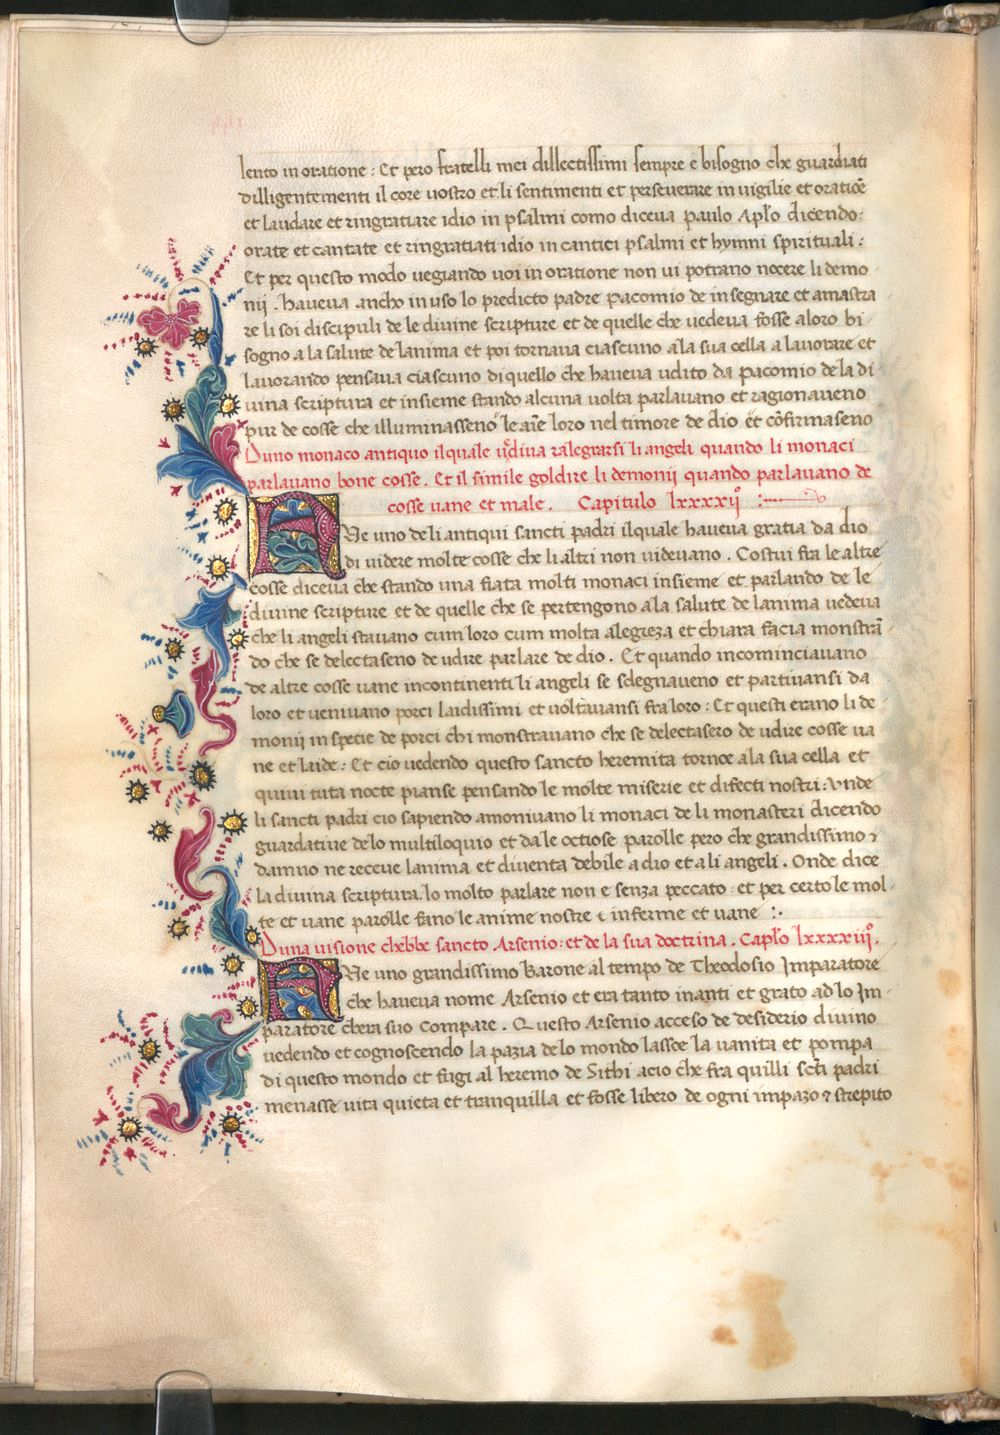 lento in oratione : Et pero fratelli mei dillectissimi sempre e bisogno che guardiati
dilligentementi il core uostro et li sentimenti et perseuerare in uigilie et oratiōe
et laudare et ringratiare idio in psalmi como diceua paulo Apl̄o dicendo :
orate et cantate et ringratiati idio in cantici psalmi et hymni spirituali :
Et per questo modo uegiando uoi in oratione non ui potrano nocere li demo
nij . haueua ancho in uso lo predicto padre pacomio de insegnare et amastra
re li soi discipuli de le diuine scripture et de quelle che uedeua fosse a loro bi
sogno a la salute de lanima et poi tornaua ciascuno a la sua cella a lauorare et
lauorando pensaua ciascuno di quello che haueua udito da pacomio de la di
uina scriptura et insieme stando alcuna uolta parlauano et ragionaueno
pur de cosse che illuminasseno le aīe loro nel timore de dio et cōfirmaseno
Duno monaco antiquo ilquale uediua ralegrarsi li angeli quando li monaci
parlauano bone cosse . Et il simile goldire li demonij quando parlauano de
cosse uane et male . Capitulo lxxxxijº :
FVe uno de li antiqui sancti padri ilquale haueua gratia da dio
di uidere molte cosse che li altri non uideuano . Costui fra le altre
cosse diceua che stando una fiata molti monaci insieme et parlando de le
diuine scripture et de quelle che se pertengono a la salute de lanima uedeua
che li angeli stauano cum loro cum molta alegreza et chiara facia monstrā
do che se delectaseno de udire parlare de dio . Et quando incominciauano
de altre cosse uane incontinenti li angeli se sdegnaueno et partiuansi da
loro et ueniuano porci laidissimi et uoltauansi fra loro : Et questi erano li de
monij in specie de porci chi monstrauano che se delectasero de udire cosse ua
ne et laide : Et cio uedendo questo sancto heremita tornoe a la sua cella et
quiui tuta nocte pianse pensando le molte miserie et difecti nostri : Vnde
li sancti padri cio sapiendo amoniuano li monaci de li monasteri dicendo
guardatiue de lo multiloquio et da le octiose parolle pero che grandissimo
damno ne receue lanima et diuenta debile a dio et a li angeli . Onde dice
la diuina scriptura lo molto parlare non e senza peccato : et per certo le mol
te et uane parolle fano le anime nostre inferme et uane :
Duna uisione chebbe sancto Arsenio : et de la sua doctrina . Capl̄o lxxxxiijº .
FVe uno grandissimo Barone al tempo de Theodosio Imparatore
che haueua nome Arsenio et era tanto inanti et grato ad lo Im
paratore chera suo Compare . Questo Arsenio acceso de desiderio diuino
uedendo et cognoscendo la pazia de lo mondo lassoe la uanita et pompa
di questo mondo et fugi al heremo de Sithi acio che fra quilli scti padri
menasse uita quieta et tranquilla et fosse libero de ogni impazo & strepito